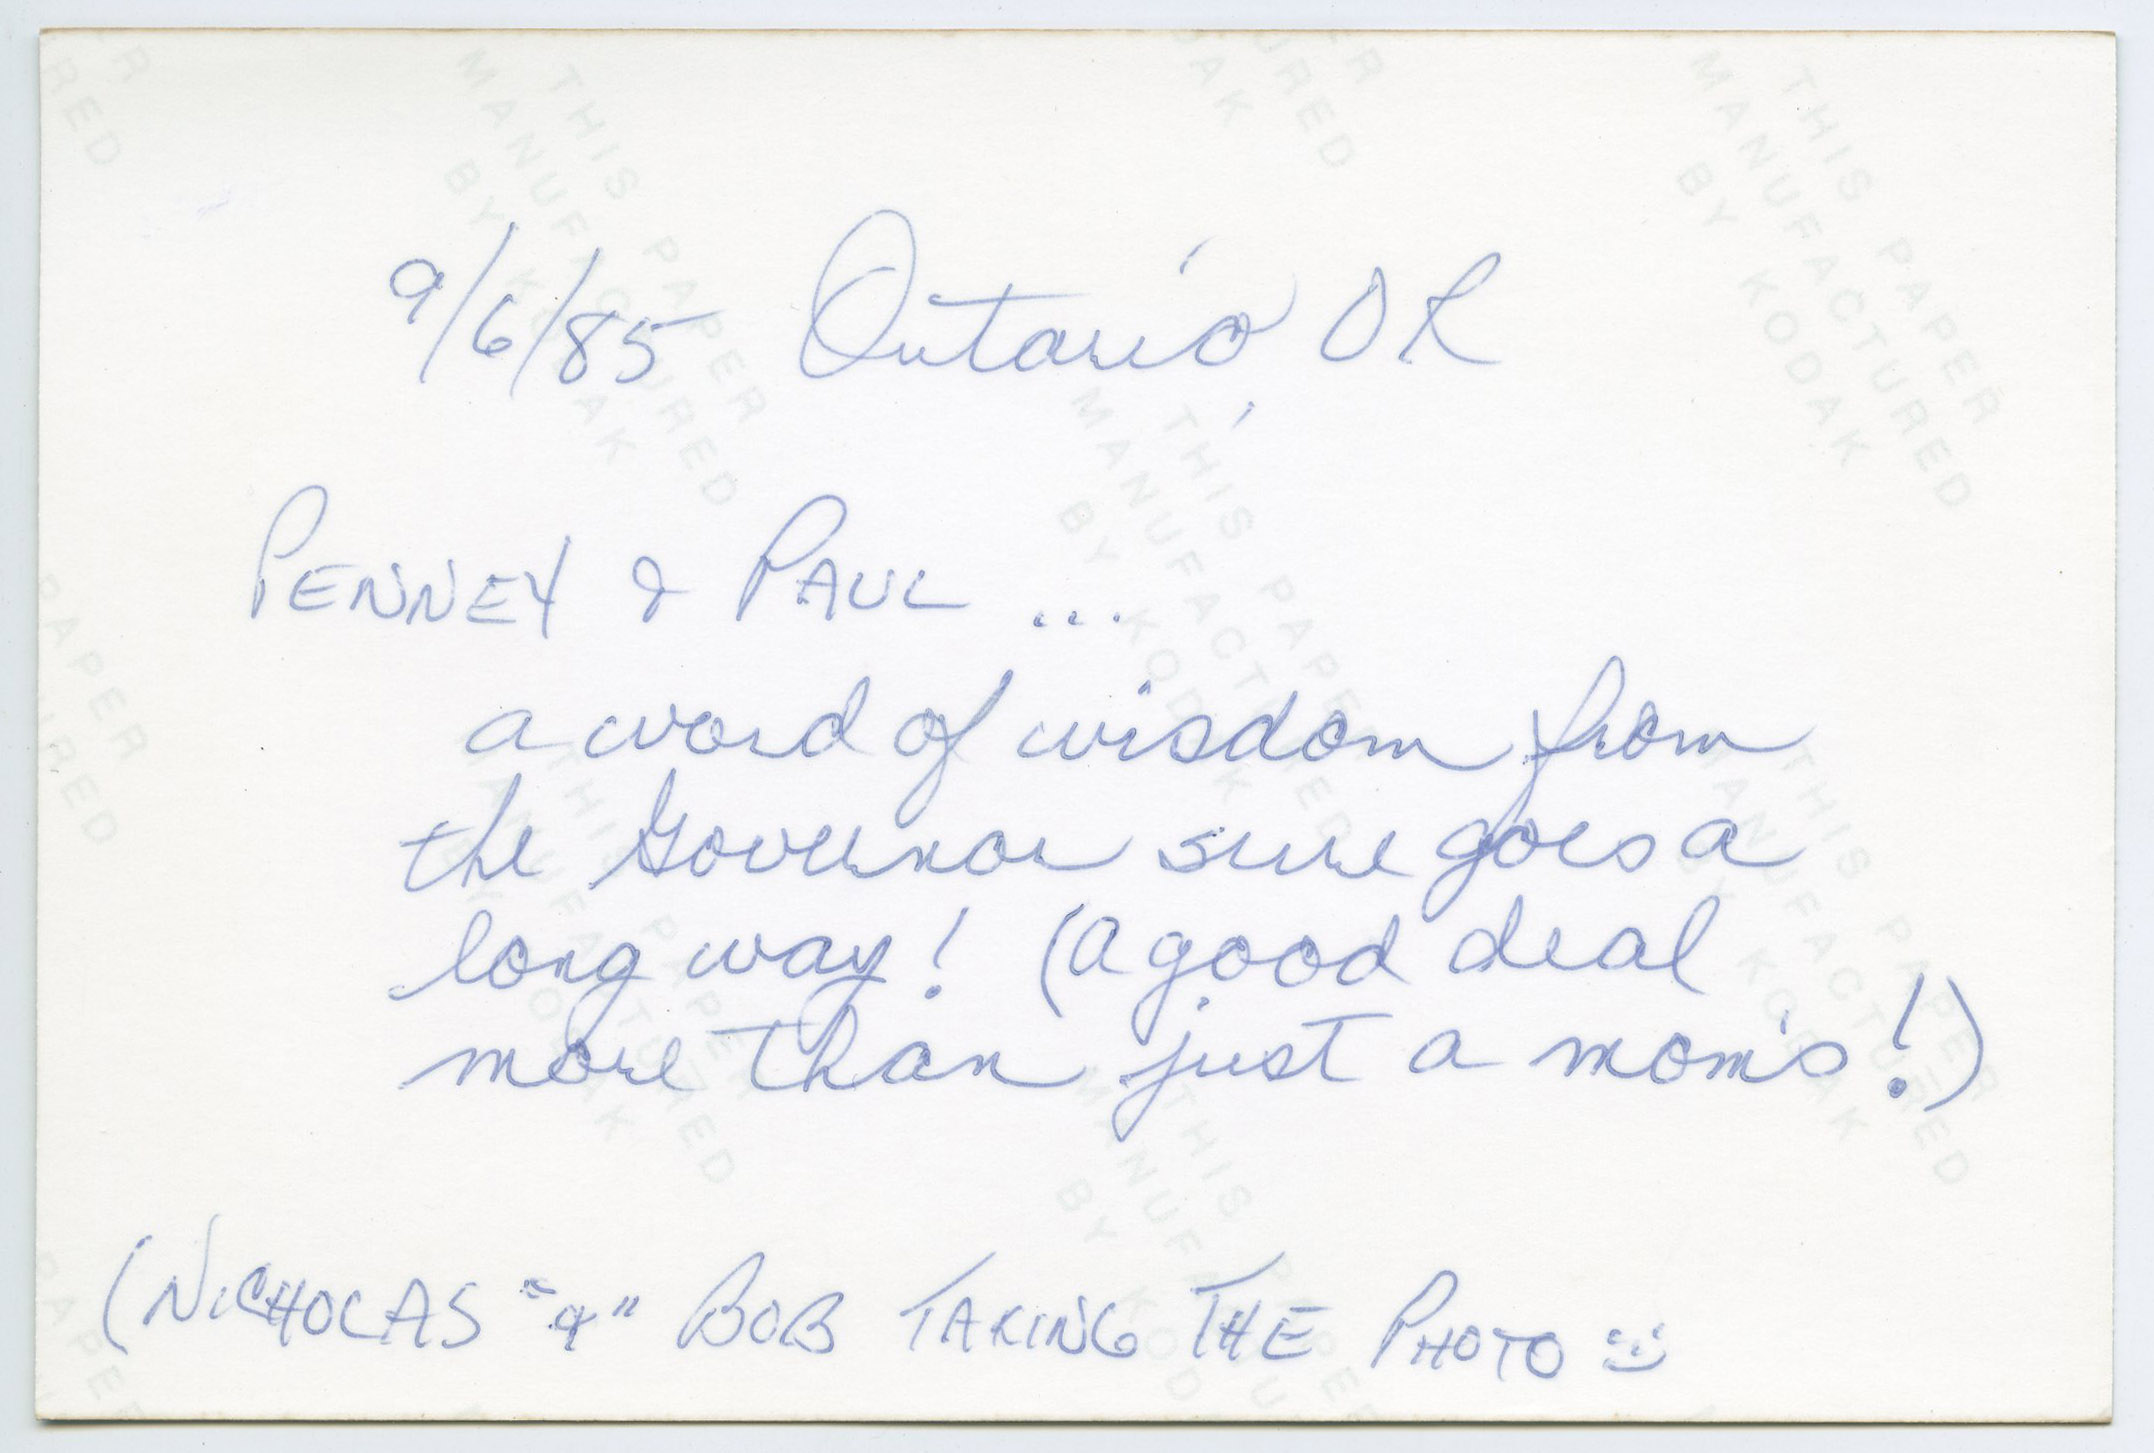 9/6/85 Ontario, OR
PENNEY & PAUL ...
a word of wisdom from
the Governor sure goes a
long way! (a good deal
more than just a mom's!)
(NICHOLAS "&" BOB TAKING THE PHOTO
THIS PAPER
MANUFACTURED
BY KODAK